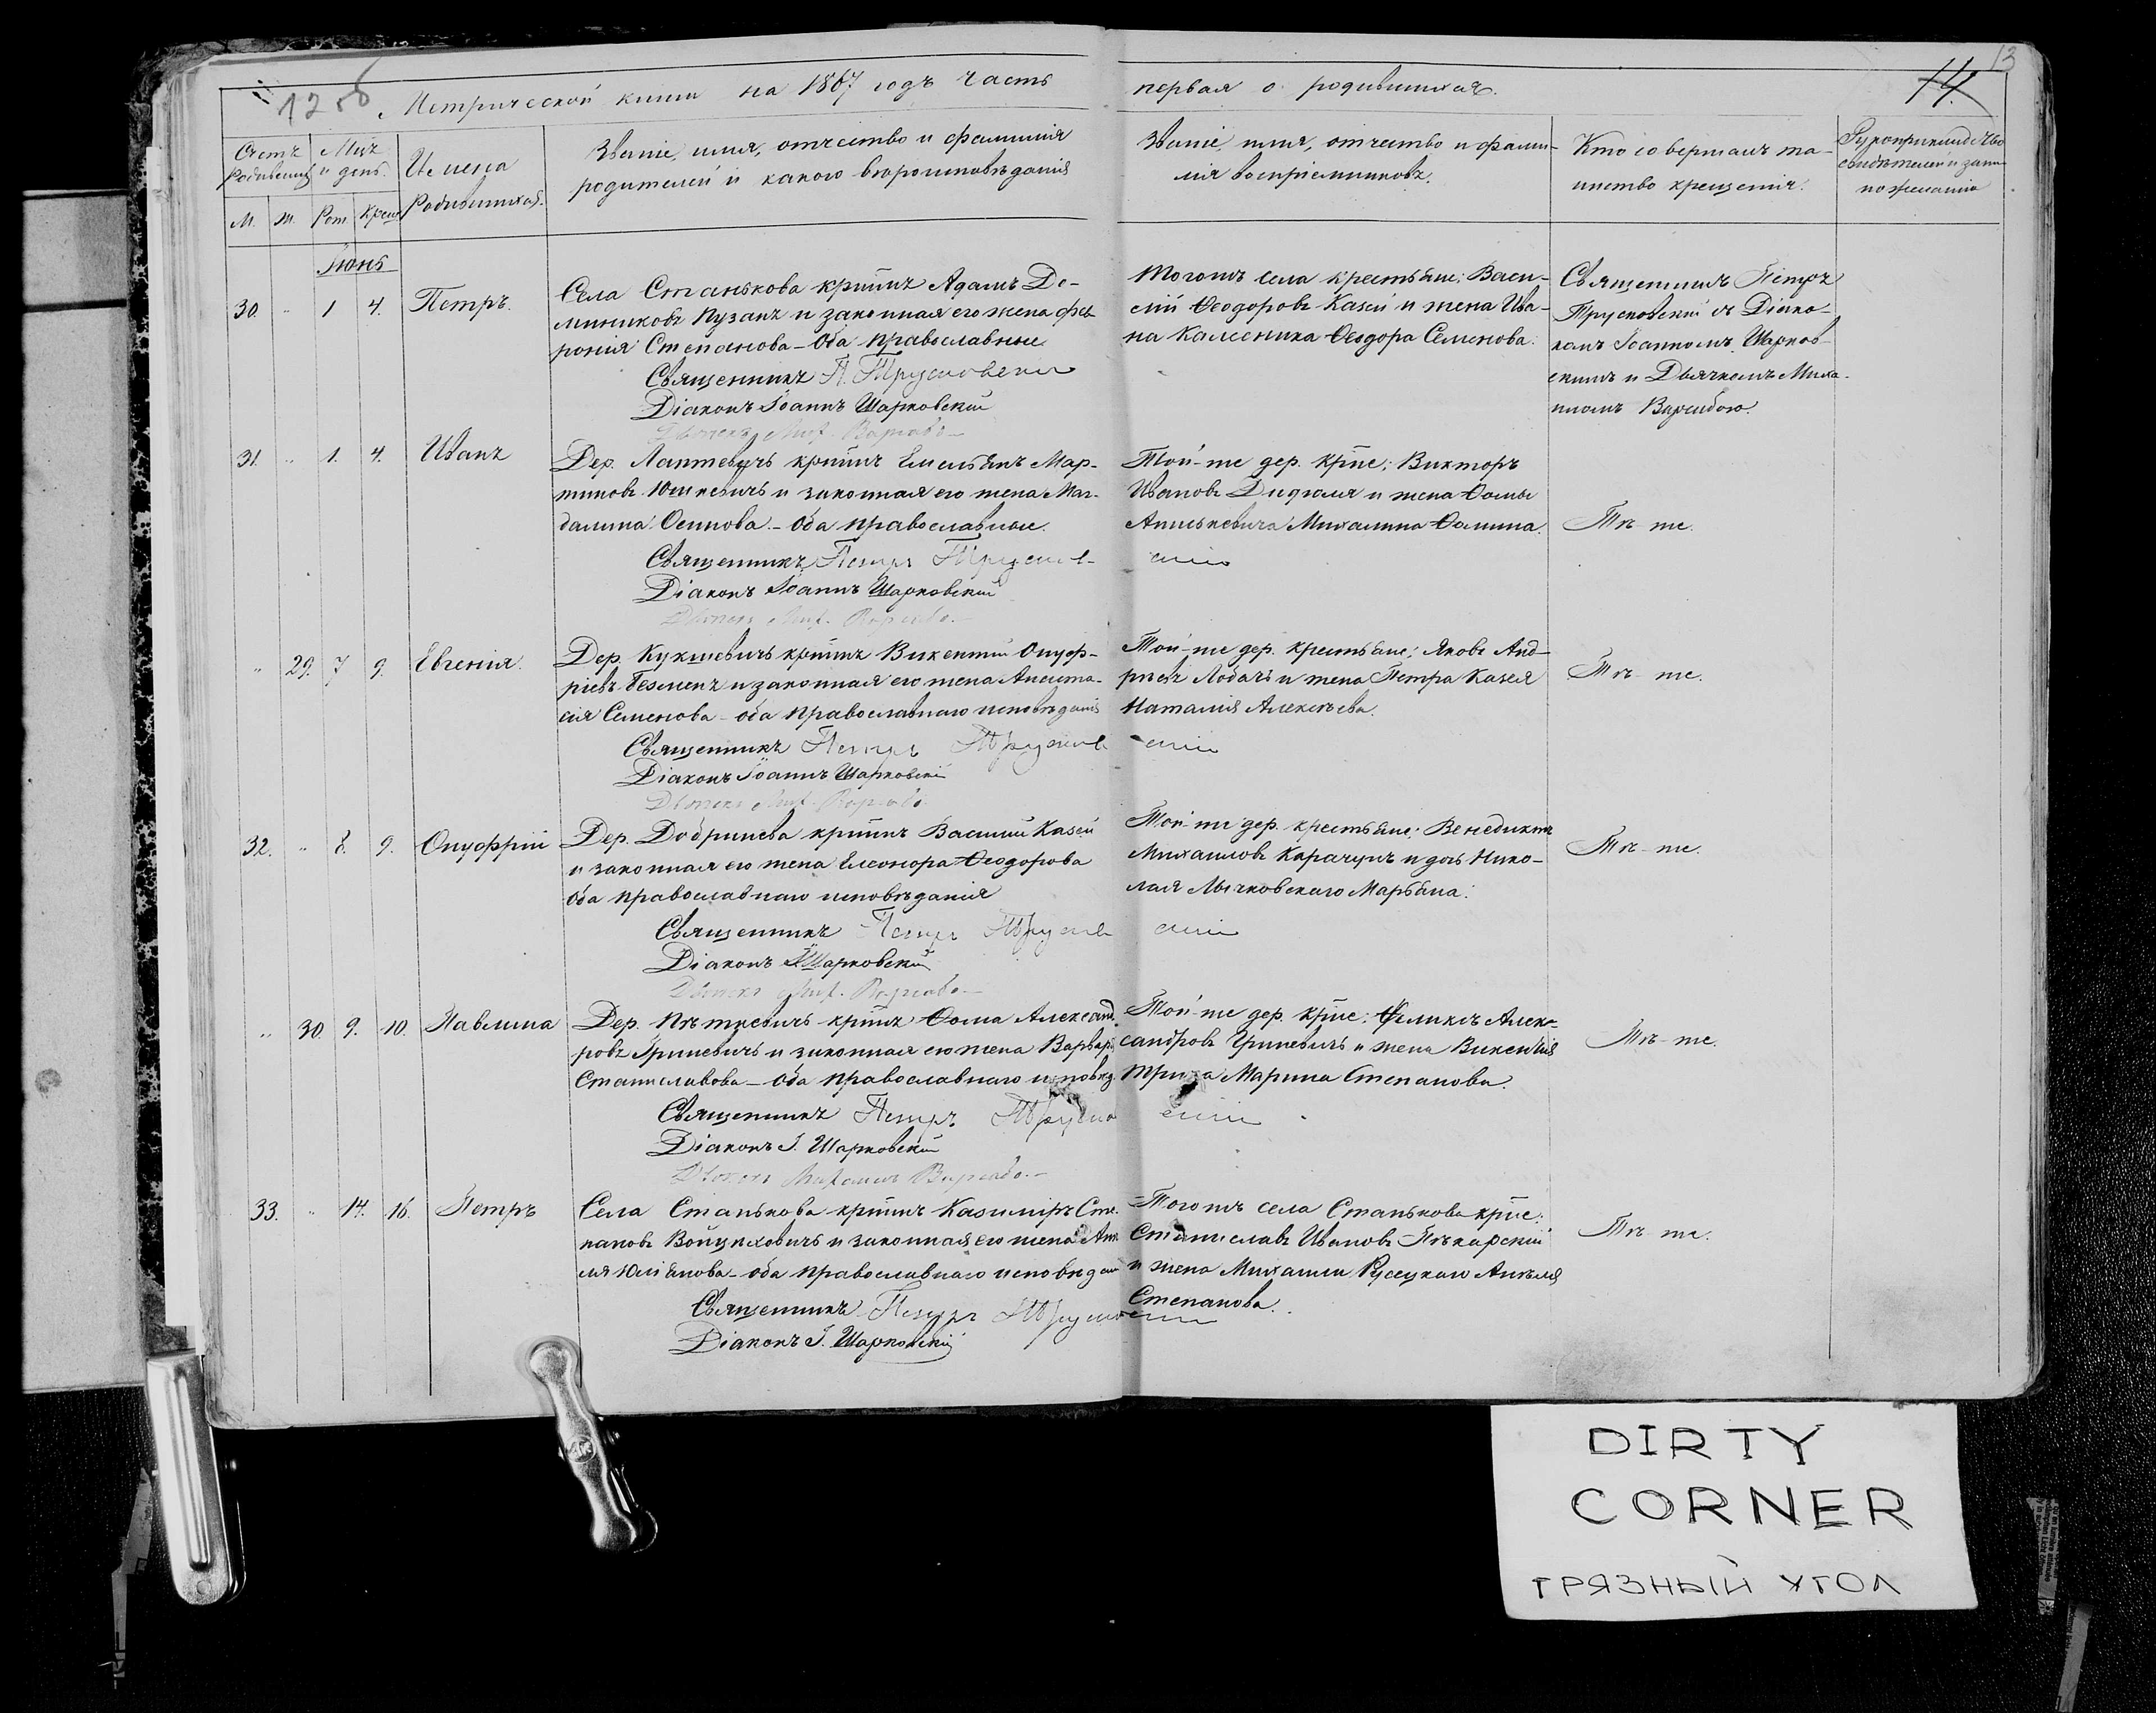 12 об
Метрической книги на 1867 годъ Часть первая о родившихся.
14.
13
Счетъ родившихся
Мѣц и день.
Имена Родившихся.
Званіе, имя, отчество и фамилія
родителей и какого вѣроисповѣданія
Званіе, имя, отчество и фами-
лія воспріемниковъ.
Кто совершалъ та-
инство крещенія.
по желанію
М. Ж. Рож. Крещ
Іюнь
30. " 1 4. Петръ.
Села Станькова крнинъ Адамъ До-
миниковъ Пузанъ и законная его жена Фев
ронія Степанова – Оба православные
Священникъ П. Трусковскій
Діаконъ Іоаннъ Шарковскій
Тогожъ села крестьяне: Васи-
лій Ѳеодоровъ Казей и жена Ива-
на Каменника Ѳеодора Семенова.
Священникъ Петръ
Трусковскій съ Діако-
номъ Іоанномъ Шарков-
скимъ и Дьячкомъ Миха-
иломъ
31. " 1. 4. Иванъ
Дер. Лаптевичъ крнинъ Емельянъ Мар-
тиновъ Юшкевичъ и законная его жена Маг-
далина Осипова. – Оба православные.
Священникъ Петръ Трусков-
скій
Діаконъ Іоаннъ Шарковскій
Той-же дер. крне: Викторъ
Ивановъ Дидюля и жена Ѳомы
Анискевича Михалина Ѳомина.
Тѣ-же.
" 29. 7 9. Евгенія.
Дер. Кукшевичъ крнинъ Викентій Онуф-
ріевъ Безменъ и законная его жена Анаста-
сія Семенова – оба православнаго исповѣданія
Священникъ Петръ Трусков
скій
Діаконъ Іоаннъ Шарковскій
Той-же дер. крестьяне: Яковъ Анд-
реевъ Лобачъ и жена Петра Казея
Наталія Алексѣева.
Тѣ-же.
32. " 8. 9. Онуфрій
Дер. Добринева крнинъ Василій Казей
и законная его жена Елеонора Ѳеодорова
Оба православнаго исповѣданія
Священникъ Петръ Трусков
скій
Діаконъ І Шарковскій
Той-же дер. крестьяне: Венедиктъ
Михаиловъ Карачунъ и дочь Нико-
лая Лычковскаго Марьяна.
Тѣ-же.
" 30. 9. 10. Павлина
Дер. Пѣткевичъ крнинъ Ѳома Александ-
ровъ Гриневичъ и законная его жена Варвара
Станиславова – Оба православнаго исповѣд.
Священникъ Петръ Труско
скій
Діаконъ І. Шарковскій
Той-же дер. крне: Феликсъ Алек-
сандровъ Гриневичъ и жена Викентія
Марина Степанова.
Тѣ-же.
33. " 14. 16. Петръ
Села Станькова крнинъ Казимиръ Сте-
пановъ Войцеховичъ и законная его жена
Юліянова – оба православнаго исповѣдан
Священникъ Петръ Трусковскій
Діаконъ І. Шарковскій
Тогожъ села Станькова крне:
Станиславъ Ивановъ Пѣкарскій
и жена Михаила Русецкаго Анѣля
Степанова.
Тѣ-же.
DIRTY
CORNER
ГРЯЗНЫЙ УГОЛ